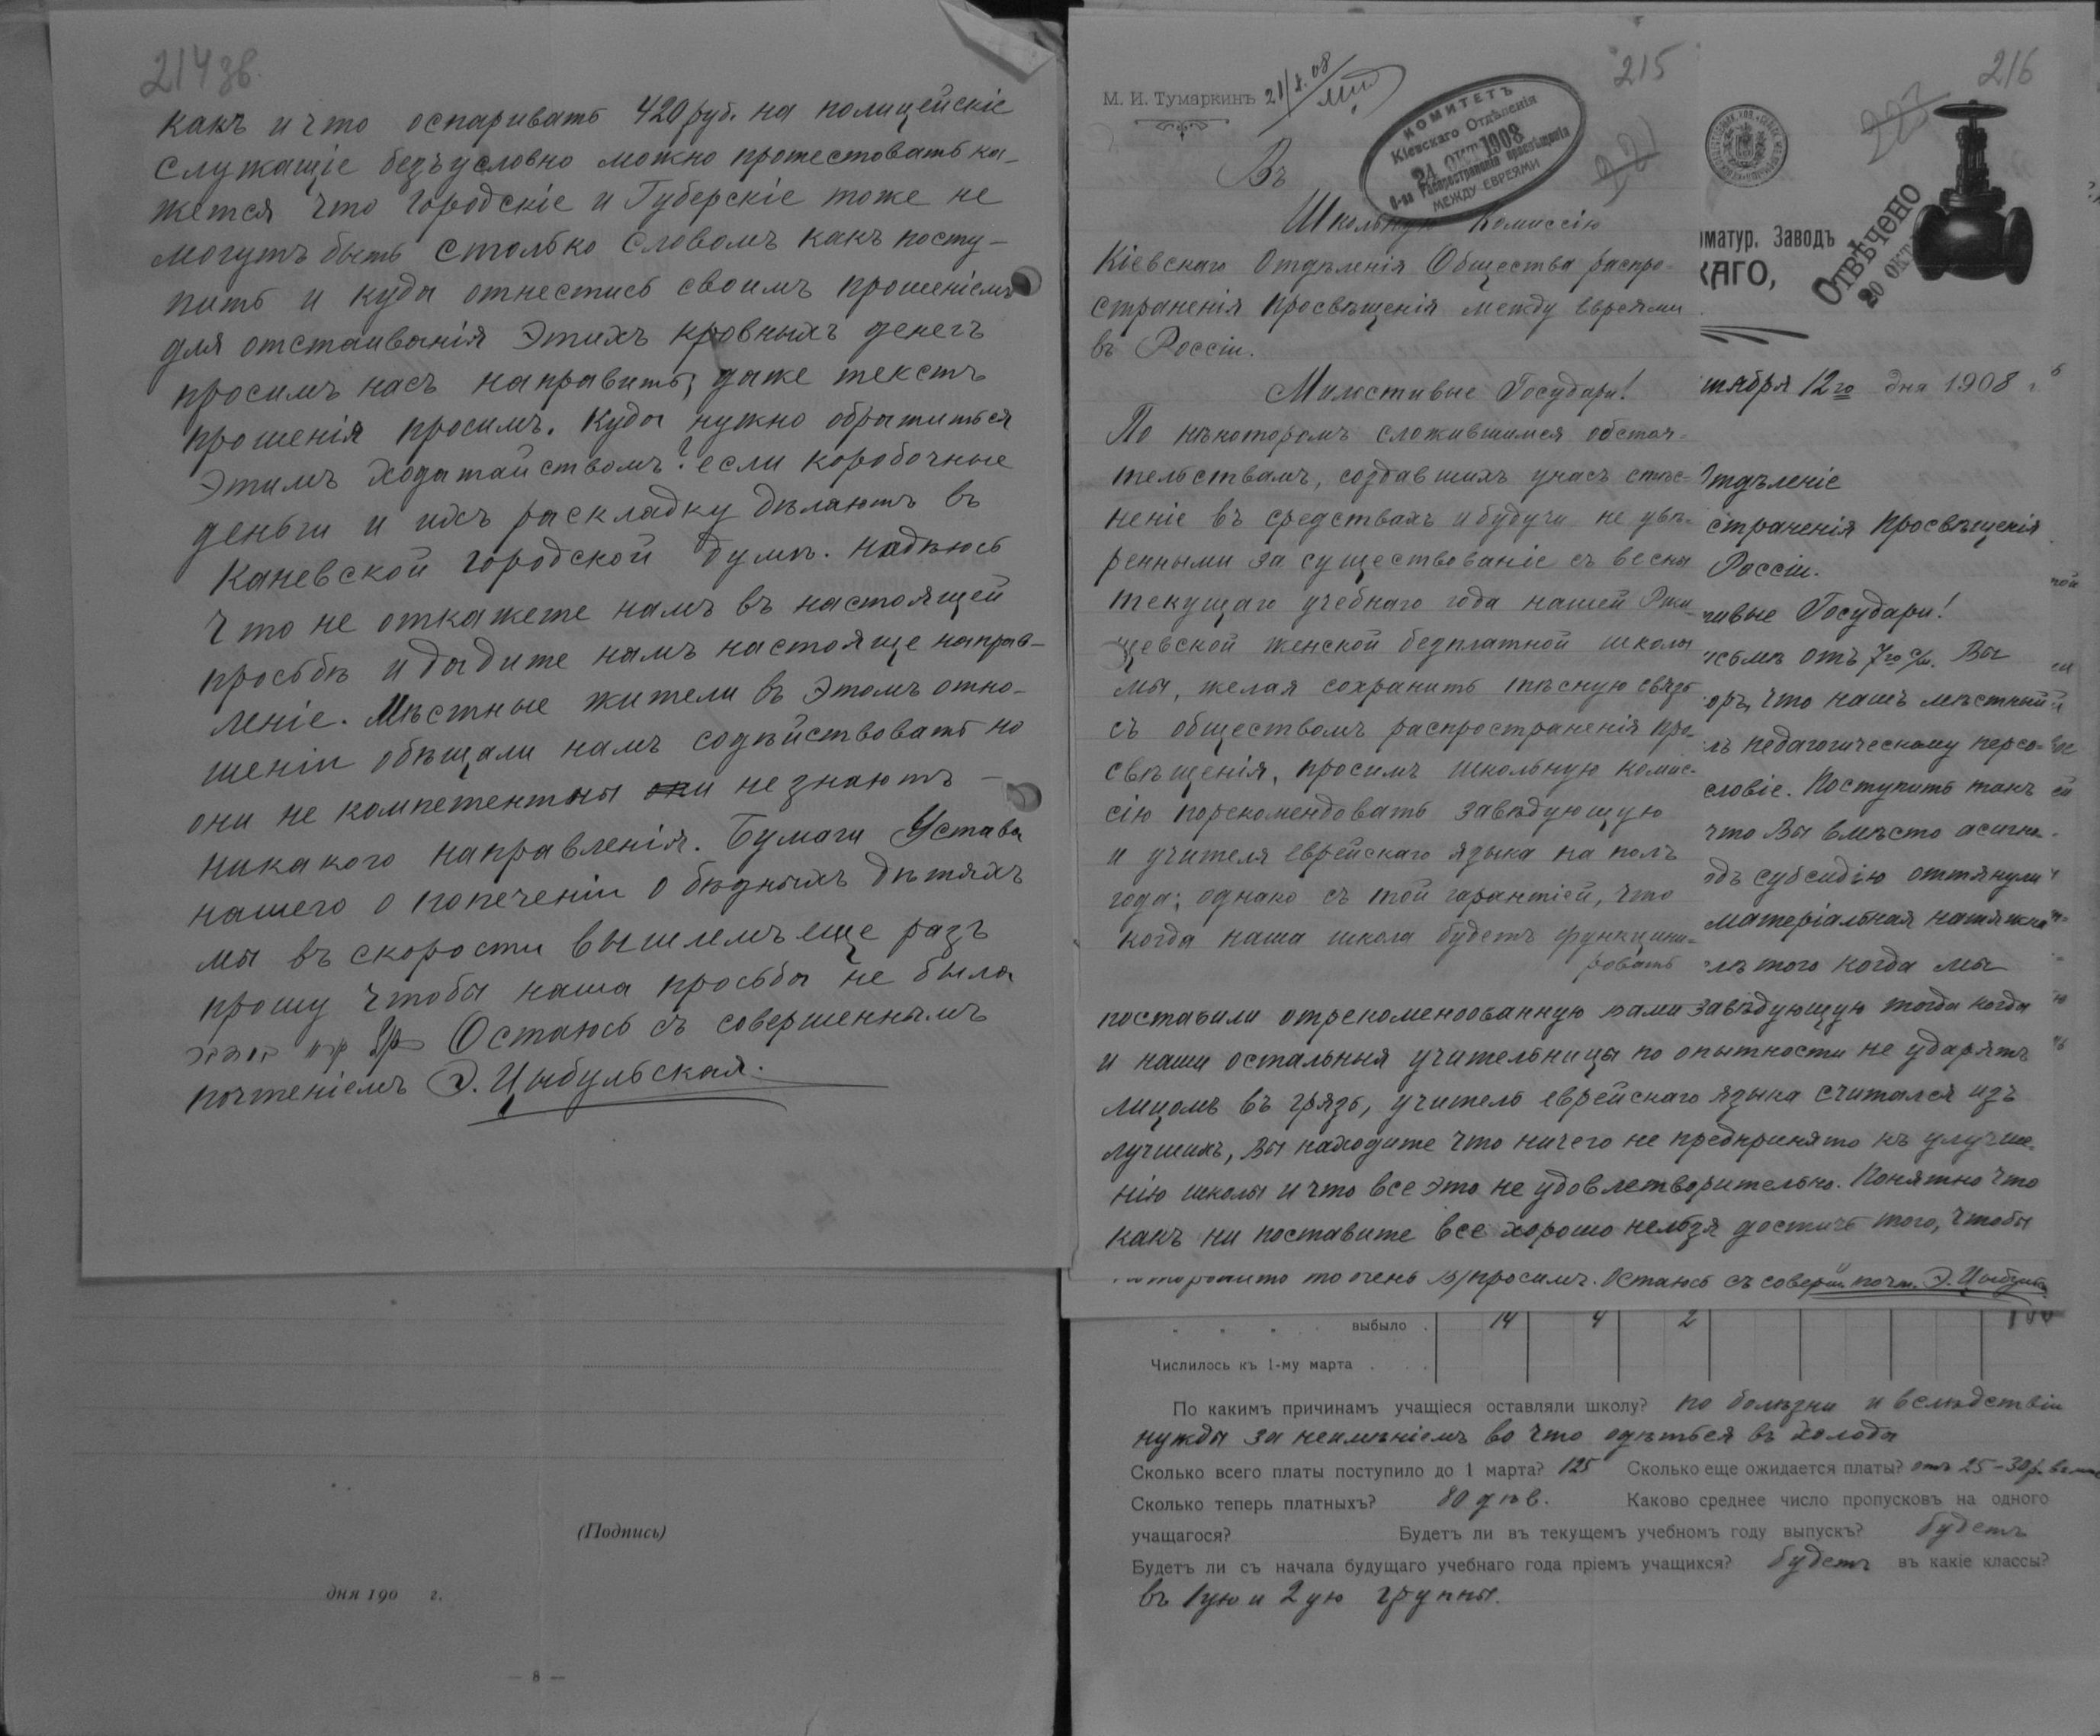 214 зв.
какъ и что оспаривать 420 руб. на полицейскіе
служащіе безъусловно можно протестовать ка-
жется что городскіе и Губерскіе тоже не
могутъ быть столько словомъ какъ посту-
пить и куда отнестись своимъ прошеніемъ
для отстаиванія этихъ кровныхъ денегъ
просимъ насъ направить, даже текстъ
прошенія просимъ. Куда нужно обратиться
этимъ ходатайствомъ? если коробочные
деньги и ихъ раскладку дѣлаютъ въ
Каневской городской думѣ. Надѣюсь
что не откажете намъ въ настоящей
просьбѣ и дадите намъ настояще направ-
леніе. Мѣстные жители въ этомъ отно-
шеніи обѣщали намъ содѣйствовать но
они не компетентны они не знаютъ -
никакого направленія. Бумаги Устава
нашего о попеченіи о бѣдныхъ дѣтяхъ
мы въ скорости вышлемъ еще разъ
прошу чтобы наша просьба не была
Остаюсь съ совершеннымъ
почтеніемъ Э. Цыбульская.
(Подпись)
дня 190 г.
— 8 —
215
М. И. Тумаркинъ
21/X. 08
КОМИТЕТЪ
Кіевскаго Отдѣленія
21 ОКТ 1908
О-ва Распространенія просвѣщенія
МЕЖДУ ЕВРЕЯМИ
Въ
Школьную Комиссію
Кіевскаго Отдѣленія Общества распро-
страненія просвѣщенія между евреями
въ Россіи.
Милостивые Государи!
По нѣкоторомъ сложившимся обстоя-
тельствамъ, создавшихъ унасъ стѣс-
неніе въ средствахъ и будучи не увѣ-
ренными за существованіе съ весны
текущаго учебнаго года нашей Ржи-
щевской женской безплатной школы
мы, желая сохранить тѣсную связь
съ обществомъ распространенія про-
свѣщенія, просимъ школьную комис-
сію порекомендовать завѣдующую
и учителя еврейскаго языка на полъ
года; однако съ той гарантіей, что
когда наша школа будетъ функціони-
ровать
216
матур. Заводъ
КАГО,
ОТВѢЧЕНО
20 ОКТ
тября 12го дня 1908 г
Отдѣленіе
страненія просвѣщенія
Россіи.
тивые Государи!
исьмѣ отъ 7го с/м. Вы
оръ, что нашъ мѣстный
лъ педагогическому персо-
словіе. Поступить такъ
что Вы вмѣсто асигн-
одъ субсидію оттянули
матеріальная натяжка
лѣ того когда мы
поставили отрекомендованную вами завѣдующую тогда когда
и наши остальныя учительницы по опытности не ударятъ
лицомъ въ грязь, учитель еврейскаго языка считался изъ
лучшихъ, Вы находите что ничего не предпринято къ улучше-
нію школы и что все это не удовлетворительно. Понятно что
какъ ни поставите все хорошо нельзя достичь того, чтобы
то очень просимъ. Остаюсь съ соверш. почт. Э. Цыбульск
выбыло . 14 4 2
Числилось къ 1-му марта . . .
По какимъ причинамъ учащіеся оставляли школу? по болѣзни и вслѣдствіи
нужды за неимѣніемъ во что одѣться въ холода
Сколько всего платы поступило до 1 марта? 125 Сколько еще ожидается платы? отъ 25-30 р.
Сколько теперь платныхъ? 80 дѣв. Каково среднее число пропусковъ на одного
учащагося? Будетъ ли въ текущемъ учебномъ году выпускъ? будетъ
Будетъ ли съ начала будущаго учебнаго года пріемъ учащихся? будетъ въ какіе классы?
въ 1ую и 2ую группы.